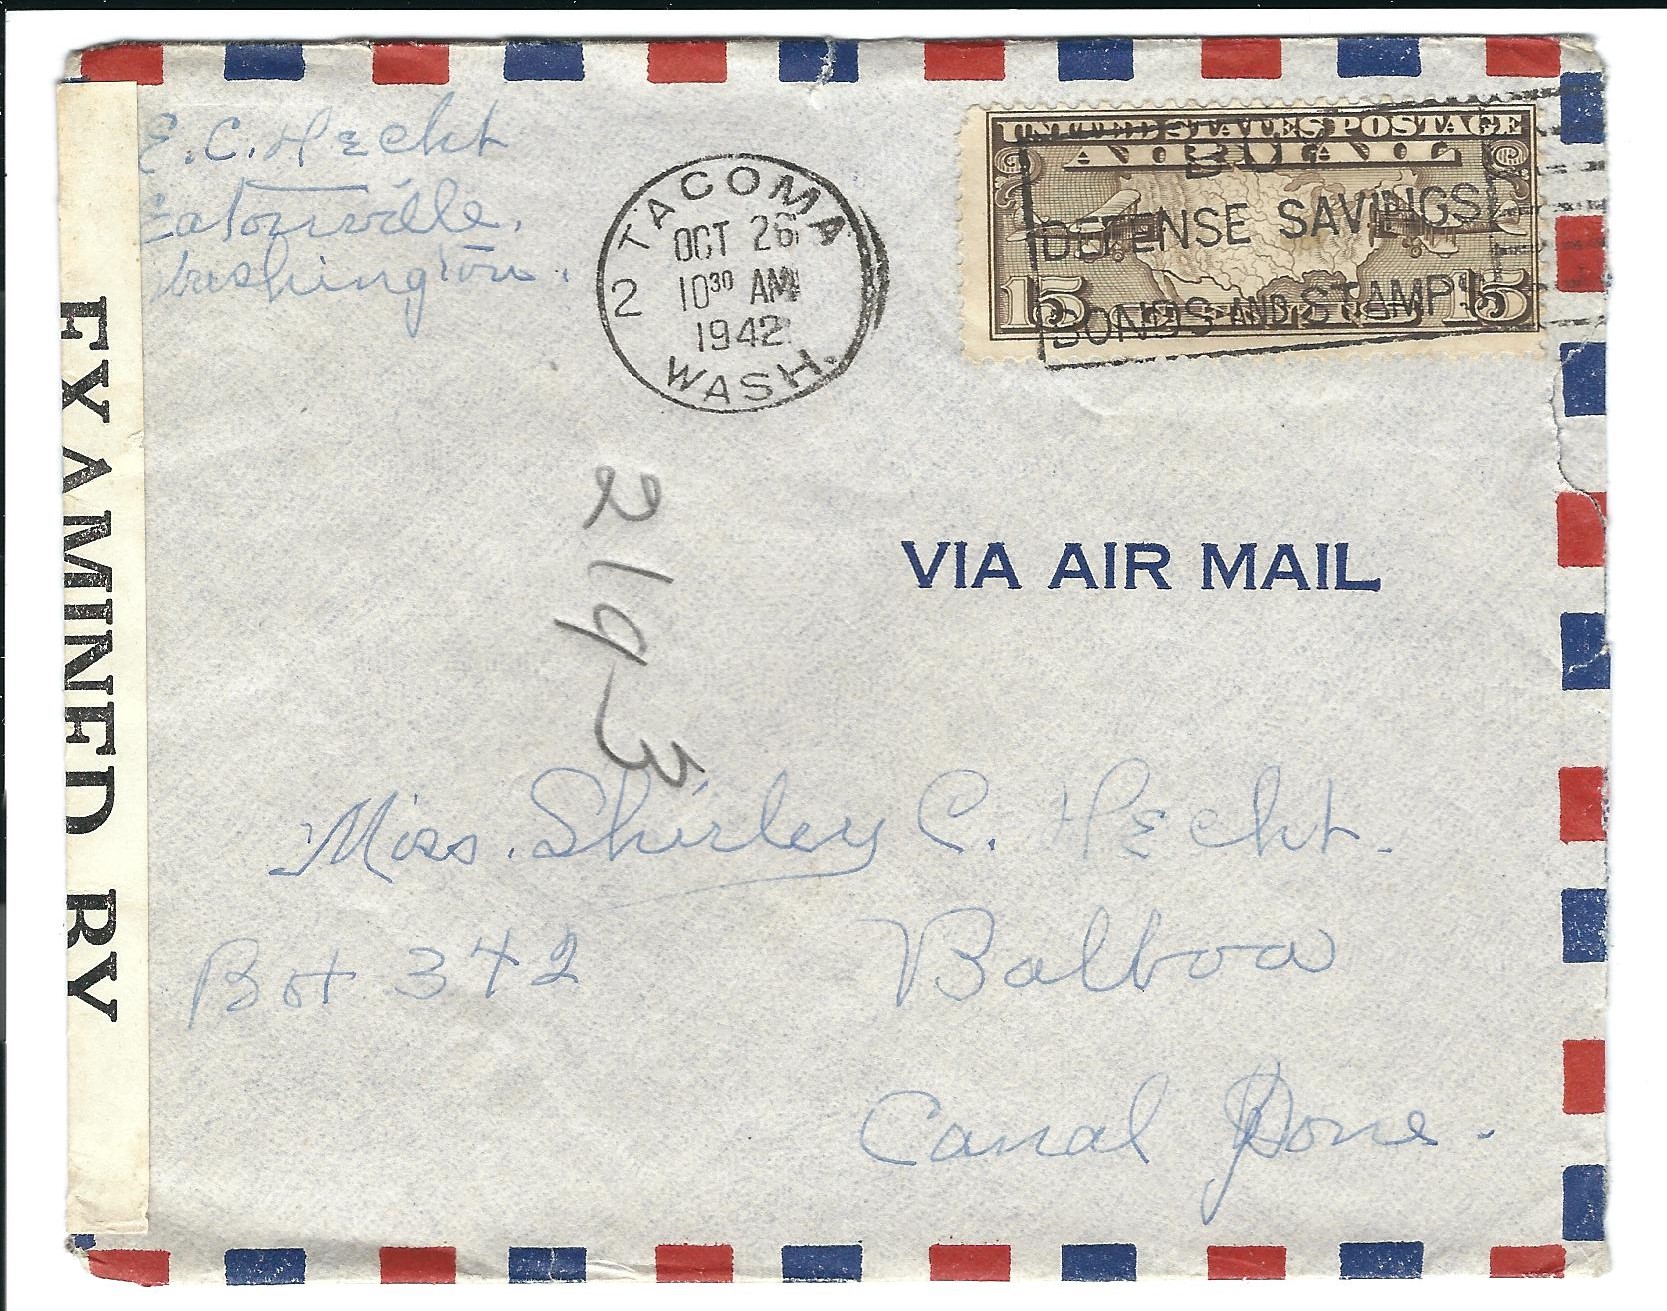 E. C. Hecht
Eatonville,
Washington.
TACOMA
OCT 26
10 30 AM
1942
WASH.
2
UNITED STATES POSTAGE
AIR MAIL
15 15
BUY
DEFENSE SAVINGS
BONDS AND STAMPS
EXAMINED BY
2193
VIA AIR MAIL
Miss. Shirley C. Hecht.
Box 342 Balboa
Canal Zone.